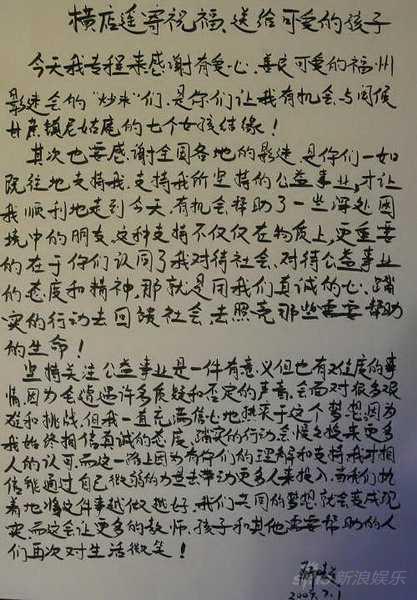 横店遥寄祝福、送给可爱的孩子
今天我专程来感谢有爱心、善良可爱的福州
影迷会的“炒米”们.是你们让我有机会与闽侯
甘蔗镇尼姑庵的七个女孩结缘！
其次也要感谢全国各地的影迷 是你们一如
既往地支持我.支持我所坚持的公益事业,才让
我顺利地走到今天.有机会帮助了一些深处困
境中的朋友.这种支持不仅仅在物质上,更重要
的在于你们认同了我对待社会、对待公益事业
的态度和精神,那就是同我们真诚的心.踏
实的行动去回馈社会、去照亮那些需要帮助
的生命！
坚持关注公益事业是一件有意义但也有难度的事
情因为会遭遇许多质疑和否定的声音.会面对很多艰
难和挑战.但我一直充满信心地热衷于这个梦想.因为
我始终相信真诚的态度、踏实的行动会慢慢换来更多
人的认可.而这一路上因为有你们的理解和支持我才相
信能通过自己微弱的力量去带动更多人来投入.当我们执
着地将这件事越做越好.我们共同的梦想就会变成现
实.而这会让更多的教师、孩子和其他需要帮助的人
们再次对生活微笑！
2009.7.1
sina新浪娱乐